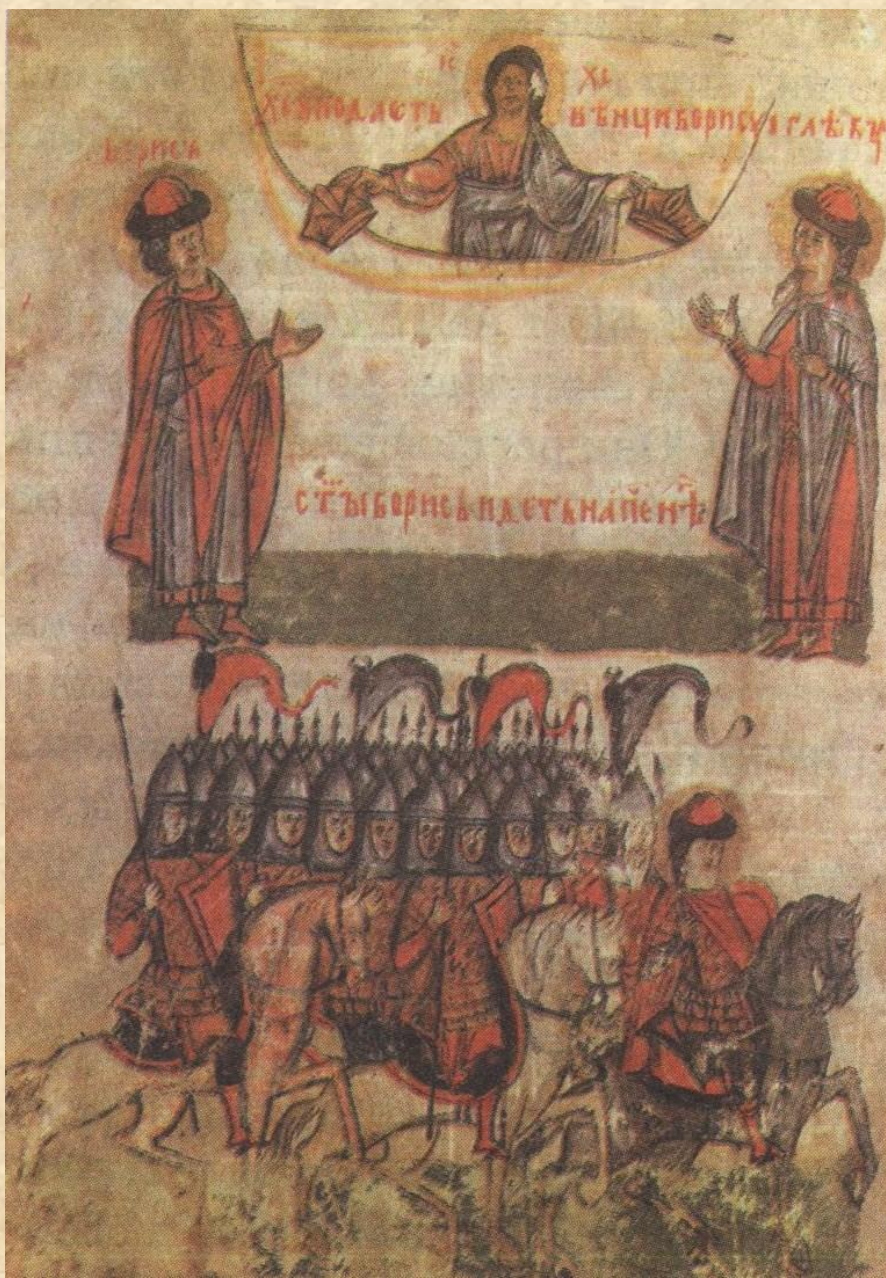 ІС ХС
ХС ПОДАЕТЬ ВѢНЦИ БОРИСУ И ГЛѢБУ
БОРИСЪ
СТЫ БОРИСЪ ИДЕТЬ НА ПЕЧЕНѢ